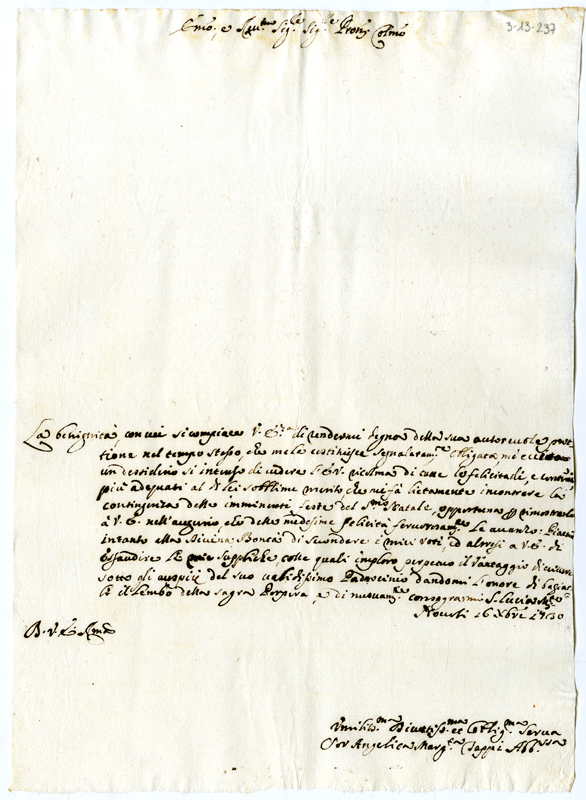 3-13-237
Emo, e Rev.mo Sig.re Sig.re Pron Colmo
La benignità, con cui si compiace V. E.za di rendermi degna della sua autorevole prot
tione nel tempo stesso, che me le costituisce segnalatam.te obligata, mi
un desiderio sì intenso di vedere l'E.V. ricolma di tutte le felicitadi, e
più adequati al di lei sublime merito che mi fà lietamente incontrare la
contingenza delle imminenti feste del S.mo Natale, opportuna p dimostrarlo
à V. E. nell'augurio, che delle medesime felicità le avanzo. Piaccia
intanto alla Divina Bontà di secondare i miei voti, ed altresì a V. E. di
essaudire le mie suppliche, colle quali imploro perpetuo il vantaggio di vivere
sotto gli auspicij del suo validissimo Padrocinio dandomi l'onore di baciar
le il lembo della Sagra Porpora, e di nuovam.te consegrarmi S. Lucia
16 Xbre 1730
D. V. E. Rma
Umilis.ma Divotis.ma et Oblig.ma Serva
Suor Angelica Marg.ta Abb.ssa